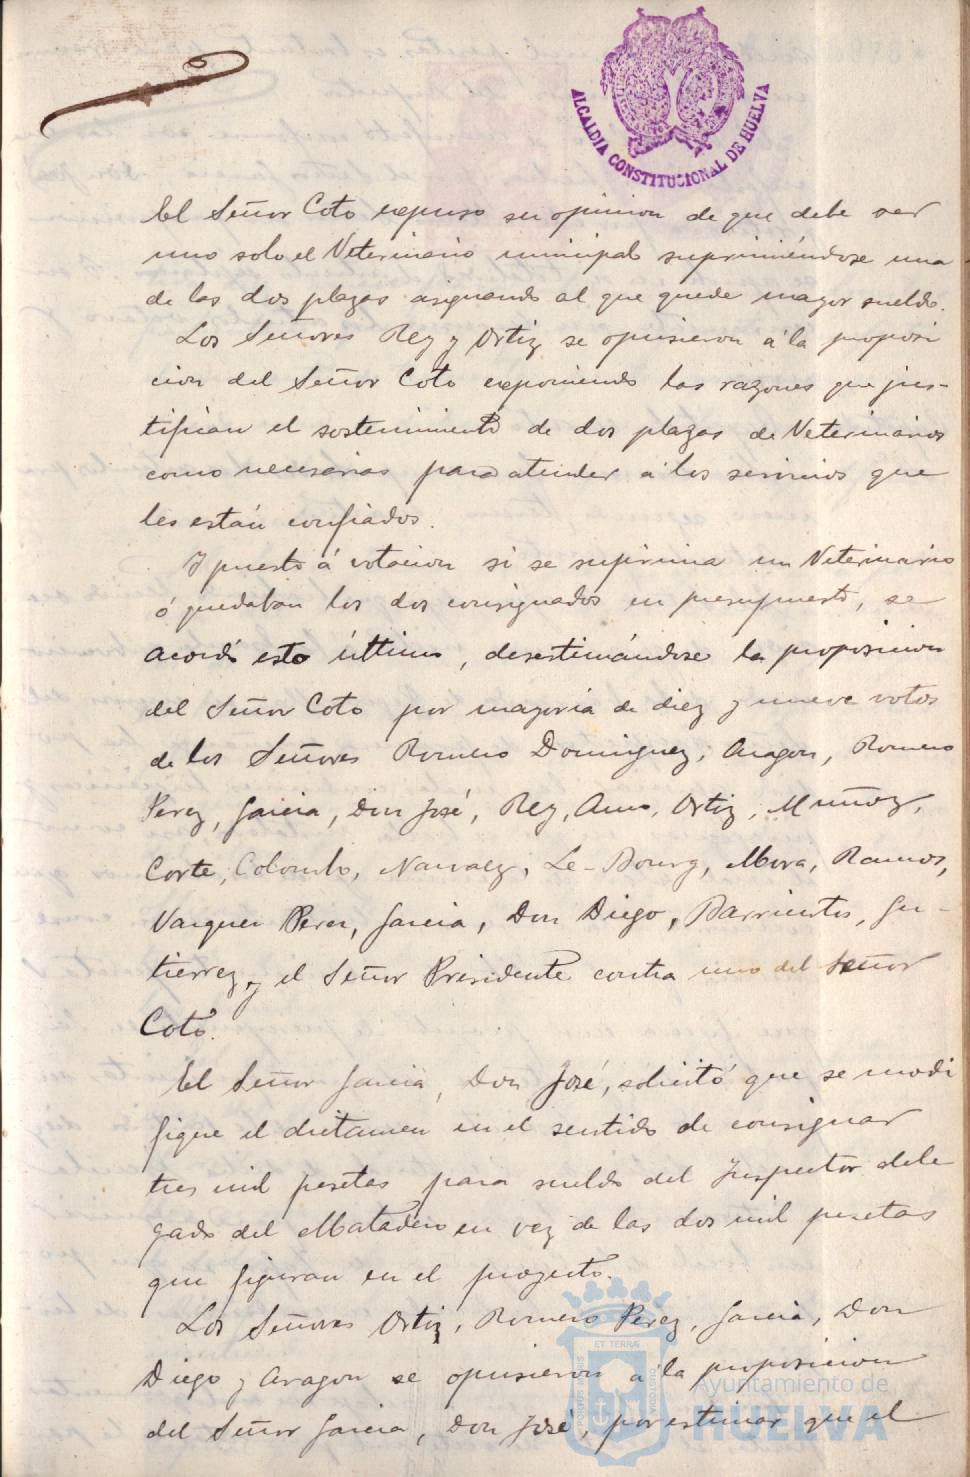 ALCALDIA CONSTITUCIONAL DE HUELVA
El Señor Coto expuso su opinion de que debe ser
uno solo el Veterinario municipal suprimiéndose una
de las dos plazas asignando al que quede mayor sueldo.
Los Señores Rey y Ortiz se opusieron á la proposi
cion del Señor Coto exponiendo las razones que jus-
tifican el sostenimiento de dos plazas de Veterinarios
como necesarias para atender á los servicios que
les están confiados.
Y puesto á votacion si se suprimia un Veterinario
ó quedaban los dos consignados en presupuesto, se
acordó esto último, desestimándose la proposicion
del Señor Coto por mayoría de diez y nueve votos
de los Señores Romero Dominguez, Aragon, Romero
Perez, Garcia, Don José, Rey, Amo, Ortiz, Muñoz,
Corte, Colombo, Narvaez, Le-Bourg, Mora, Ramos,
Vazquez Perez, Garcia, Don Diego, Barrientos, Gu-
tierrez y el Señor Presidente contra uno del Señor
Coto.
El Señor Garcia, Don José, solicitó que se modi
fique el dictamen en el sentido de consignar
tres mil pesetas para sueldo del Inspector dele
gado del Matadero en vez de las dos mil pesetas
que figuran en el proyecto.
Los Señores Ortiz, Romero Perez, Garcia, Don
Diego y Aragon se opusieron á la proposicion
del Señor Garcia, Don José, por estimar que el
PORTUS MARIS ET TERRAE CUSTODIA
Ayuntamiento de
HUELVA